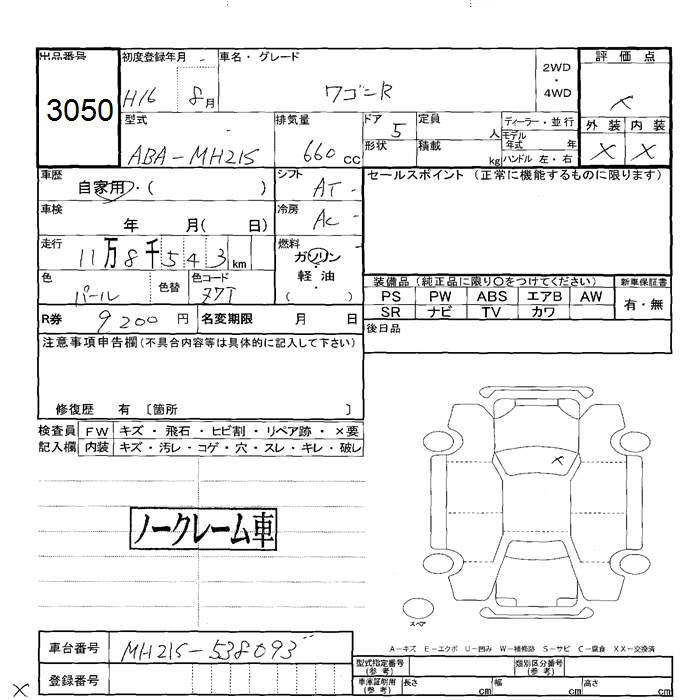 出品番号 初度登録年月 車名・グレード 評価点
3050 H16 8月 ワゴンR 2WD・4WD ×
外装 内装
× ×
型式 排気量 ドア 定員 ディーラー・並行
ABA-MH21S 660cc 5 人 モデル年式 年
形状 積載 kg ハンドル 左・右
車歴 シフト セールスポイント(正常に機能するものに限ります)
自家用・( ) AT
車検 冷房
年 月( 日) AC
走行 燃料
11万8千543km ガソリン
軽油
( )
色 色替 色コード
パール Z7T
装備品(純正品に限り○をつけてください) 新車保証書
PS PW ABS エアB AW 有・無
SR ナビ TV カワ
R券 9200円 名変期限 月 日
後日品
注意事項申告欄(不具合内容等は具体的に記入して下さい)
修復歴 有 〔箇所 〕
検査員 FW キズ・飛石・ヒビ割・リペア跡・×要
記入欄 内装 キズ・汚レ・コゲ・穴・スレ・キレ・破レ
×
ノークレーム車
スペア
A-キズ E-エクボ U-凹み W-補修跡 S-サビ C-腐食 XX-交換済
車台番号 MH21S-538093
登録番号
型式指定番号(参考) 類別区分番号(参考)
車庫証明用(参考) 長さ cm 幅 cm 高さ cm
×